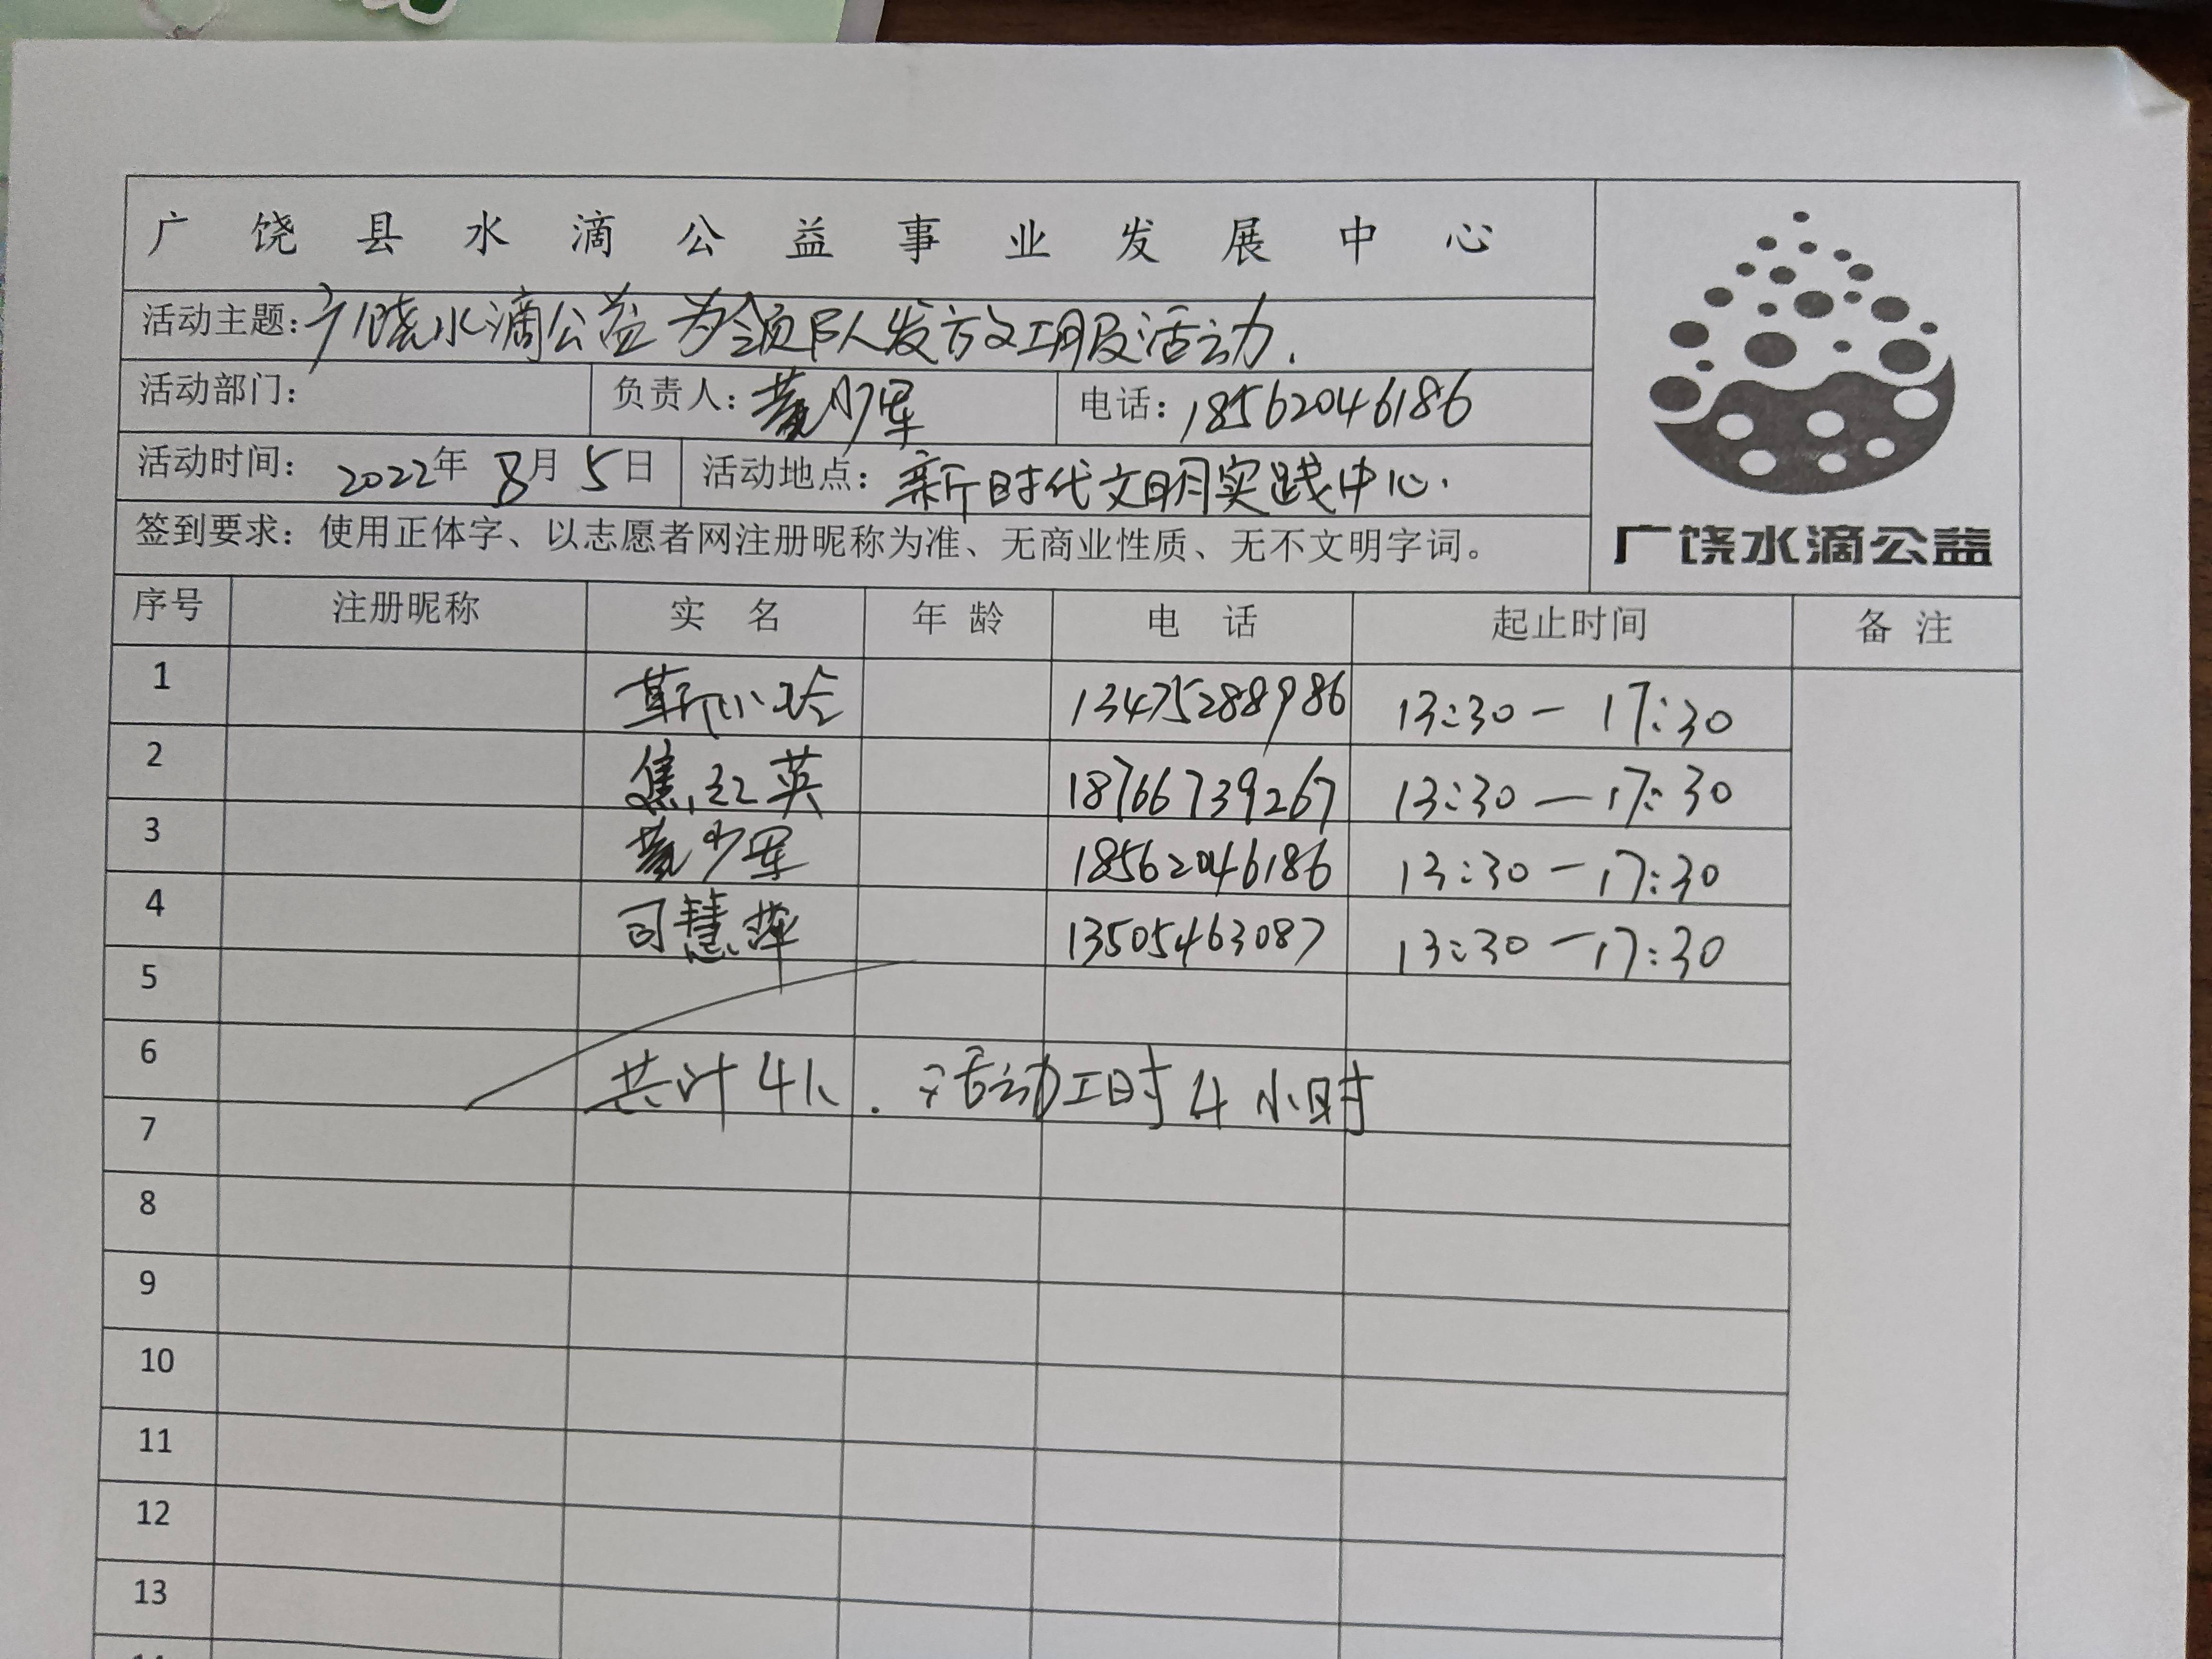 广饶县水滴公益事业发展中心
活动主题:广饶水滴公益为领队发放工服及活动.
活动部门: 负责人:黄少军 电话:18562046186
活动时间: 2022年 8月 5日 活动地点: 新时代文明实践中心.
签到要求:使用正体字、以志愿者网注册昵称为准、无商业性质、无不文明字词。
广饶水滴公益
序号 注册昵称 实 名 年 龄 电 话 起止时间 备 注
1 靳小玲 13475288986 13:30 — 17:30
2 焦红英 18766739267 13:30 — 17:30
3 黄少军 18562046186 13:30 — 17:30
4 司慧萍 13505463087 13:30 — 17:30
5
6 共计4人. 活动工时4小时
7
8
9
10
11
12
13